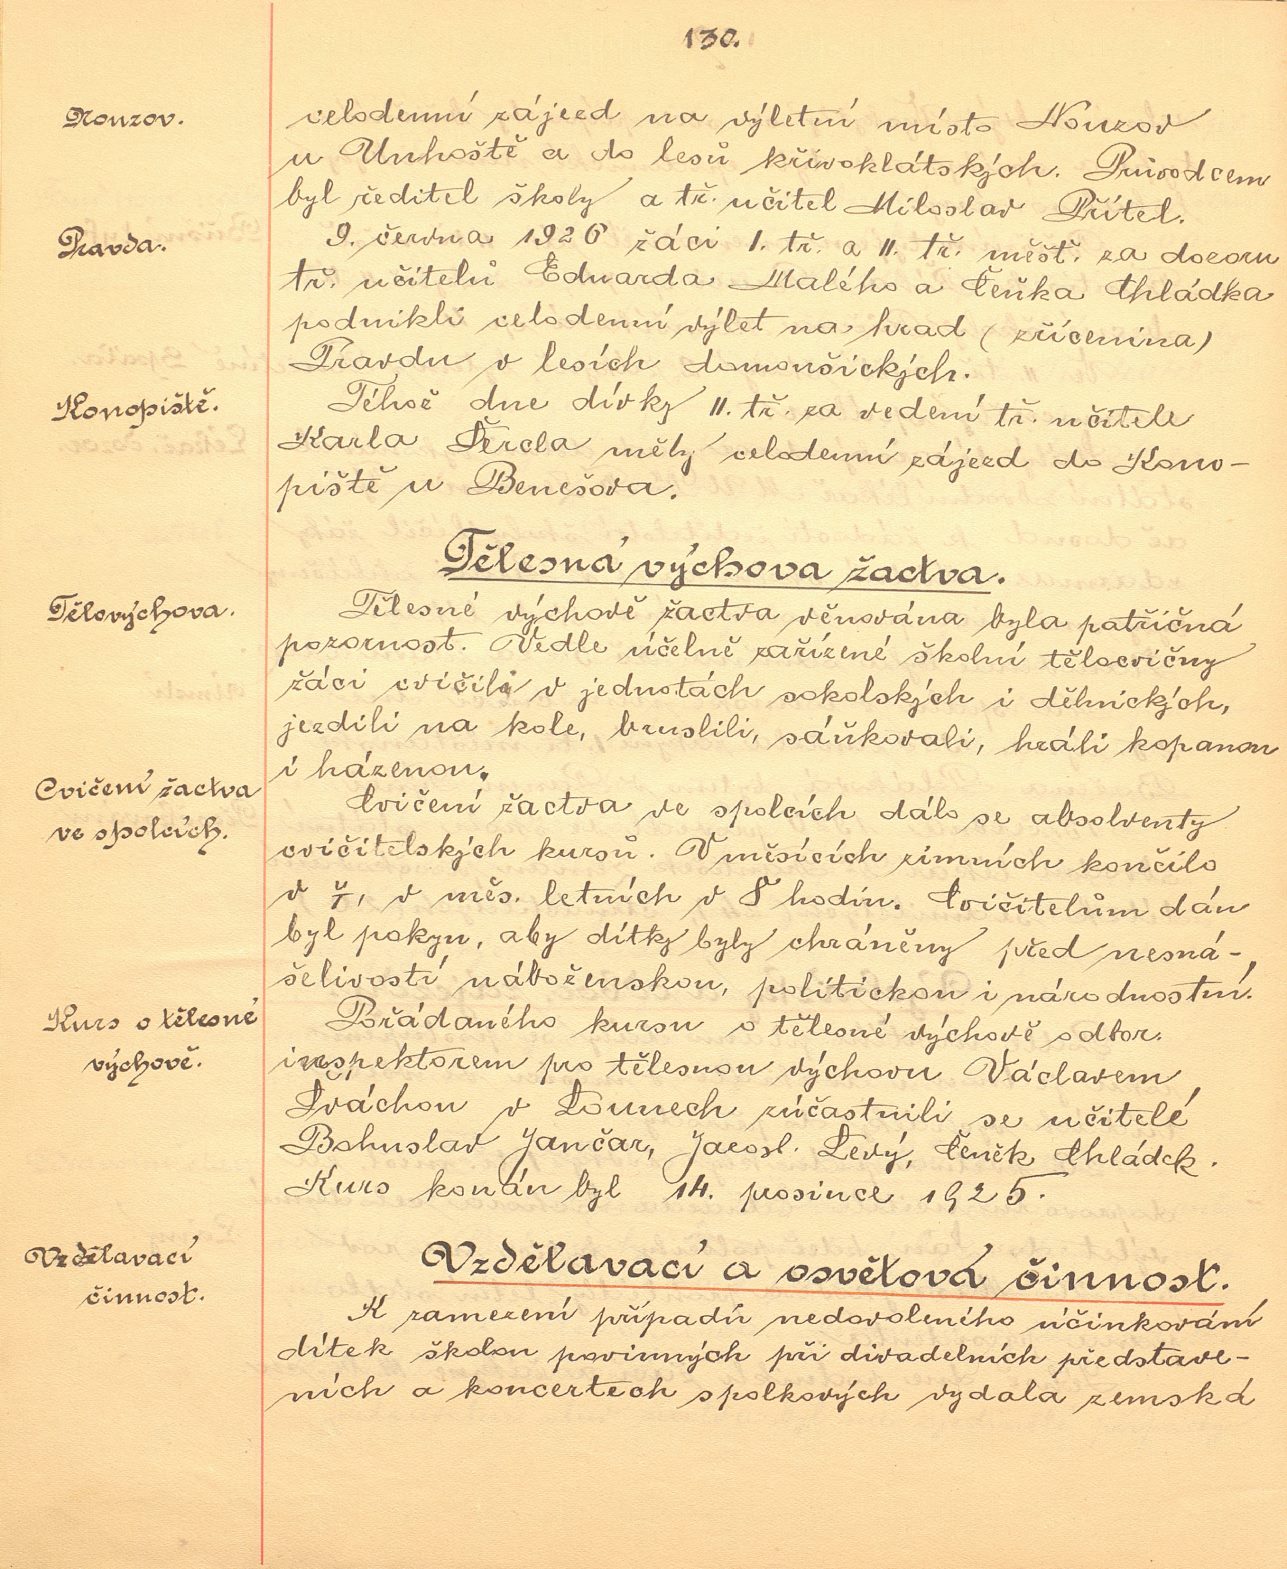 130.
Nouzov.
celodenní zájezd na výletní místo Nouzov
u Unhoště a do lesů křivoklátských. Průvodcem
byl ředitel školy a tř. učitel Miloslav Přítel.
Pravda.
9. června 1926 žáci I. tř. a II. tř. měšť. za dozoru
tř. učitelů Eduarda Malého a Čeňka Chládka
podnikli celodenní výlet na hrad (zřícenina)
Pravdu v lesích domoušických.
Konopiště.
Téhož dne dívky II. tř. za vedení tř. učitele
Karla Šercla měly celodenní zájezd do Kono-
piště u Benešova.
Tělesná výchova žactva.
Tělovýchova.
Tělesné výchově žactva věnována byla patřičná
pozornost. Vedle účelně zařízené školní tělocvičny
žáci cvičili v jednotách sokolských i dělnických,
jezdili na kole, bruslili, sáňkovali, hráli kopanou
i házenou.
Cvičení žactva
ve spolcích.
Cvičení žactva ve spolcích dálo se absolventy
cvičitelských kursů. V měsících zimních končilo
v 7, v měs. letních v 8 hodin. Cvičitelům dán
byl pokyn, aby dítky byly chráněny před nesná-
šelivostí náboženskou, politickou i národnostní.
Kurs o tělesné
výchově.
Pořádaného kursu o tělesné výchově odbor.
inspektorem pro tělesnou výchovu Václavem
Šváchou v Lounech zúčastnili se učitelé
Bohuslav Jančar, Jarosl. Levý, Čeněk Chládek.
Kurs konán byl 14. prosince 1925.
Vzdělavací
činnost.
Vzdělavací a osvětová činnost.
K zamezení případů nedovoleného účinkování
dítek školou povinných při divadelních představe-
ních a koncertech spolkových vydala zemská